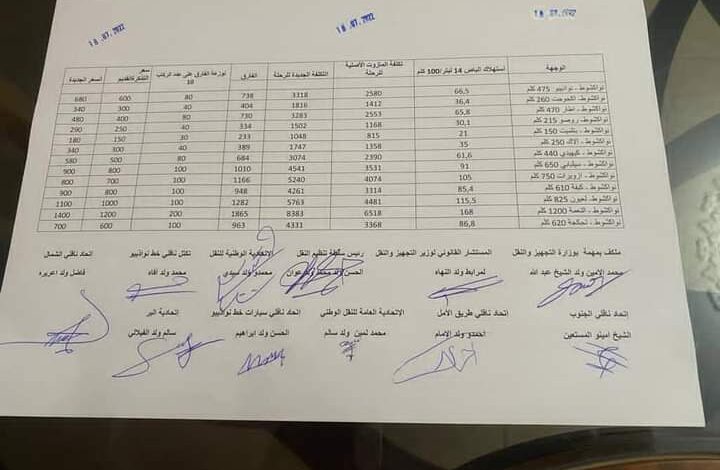 18.07.2022 18.07.2022 18.07.2022
الوجهة استهلاك الباص 14 ليتر/100 كلم تكلفة المازوت الأصلية للرحلة التكلفة الجديدة للرحلة الفارق توزعة الفارق على عدد الركاب 18 سعر التذكرة القديم السعر الجديدة
نواكشوط - نواذيبو 475 كلم 66,5 2580 3318 738 80 600 680
نواكشوط - اكجوجت 260 كلم 36,4 1412 1816 404 40 300 340
نواكشوط - اطار 470 كلم 65,8 2553 3283 730 80 400 480
نواكشوط - روصو 215 كلم 30,1 1168 1502 334 40 250 290
نواكشوط - بتلميت 150 كلم 21 815 1048 233 30 150 180
نواكشوط - ألاك 250 كلم 35 1358 1747 389 40 300 340
نواكشوط - كيهيدي 440 كلم 61,6 2390 3074 684 80 500 580
نواكشوط - سيلبابي 650 كلم 91 3531 4541 1010 100 800 900
نواكشوط - ازويرات 750 كلم 105 4074 5240 1166 100 700 800
نواكشوط - كيفة 610 كلم 85,4 3314 4261 948 100 800 900
نواكشوط - لعيون 825 كلم 115,5 4481 5763 1282 100 1000 1100
نواكشوط - النعمة 1200 كلم 168 6518 8383 1865 200 1200 1400
نواكشوط - تجكجة 620 كلم 86,8 3368 4331 963 100 600 700
مكلف بمهمة بوزارة التجهيز والنقل المستشار القانوني لوزير التجهيز والنقل رئيس سلطة تنظيم النقل الاتحادية الوطنية للنقل تكتل ناقلي خط نواذيبو اتحاد ناقلي الشمال
محمد الامين ولد الشيخ عبد الله لمرابط ولد التنهاه الحسن ولد محمد ولد عوان محمدو ولد سيدي محمد ولد أفاه فاضل ولد اعريره
اتحاد ناقلي الجنوب اتحاد ناقلي طريق الأمل الاتحادية العامة للنقل الوطني اتحاد ناقلي سيارات خط نواذيبو اتحادية البر
الشيخ امينو المستعين احمدو ولد الإمام محمد لمين ولد سالم الحسن ولد ابراهيم سالم ولد الفيلالي